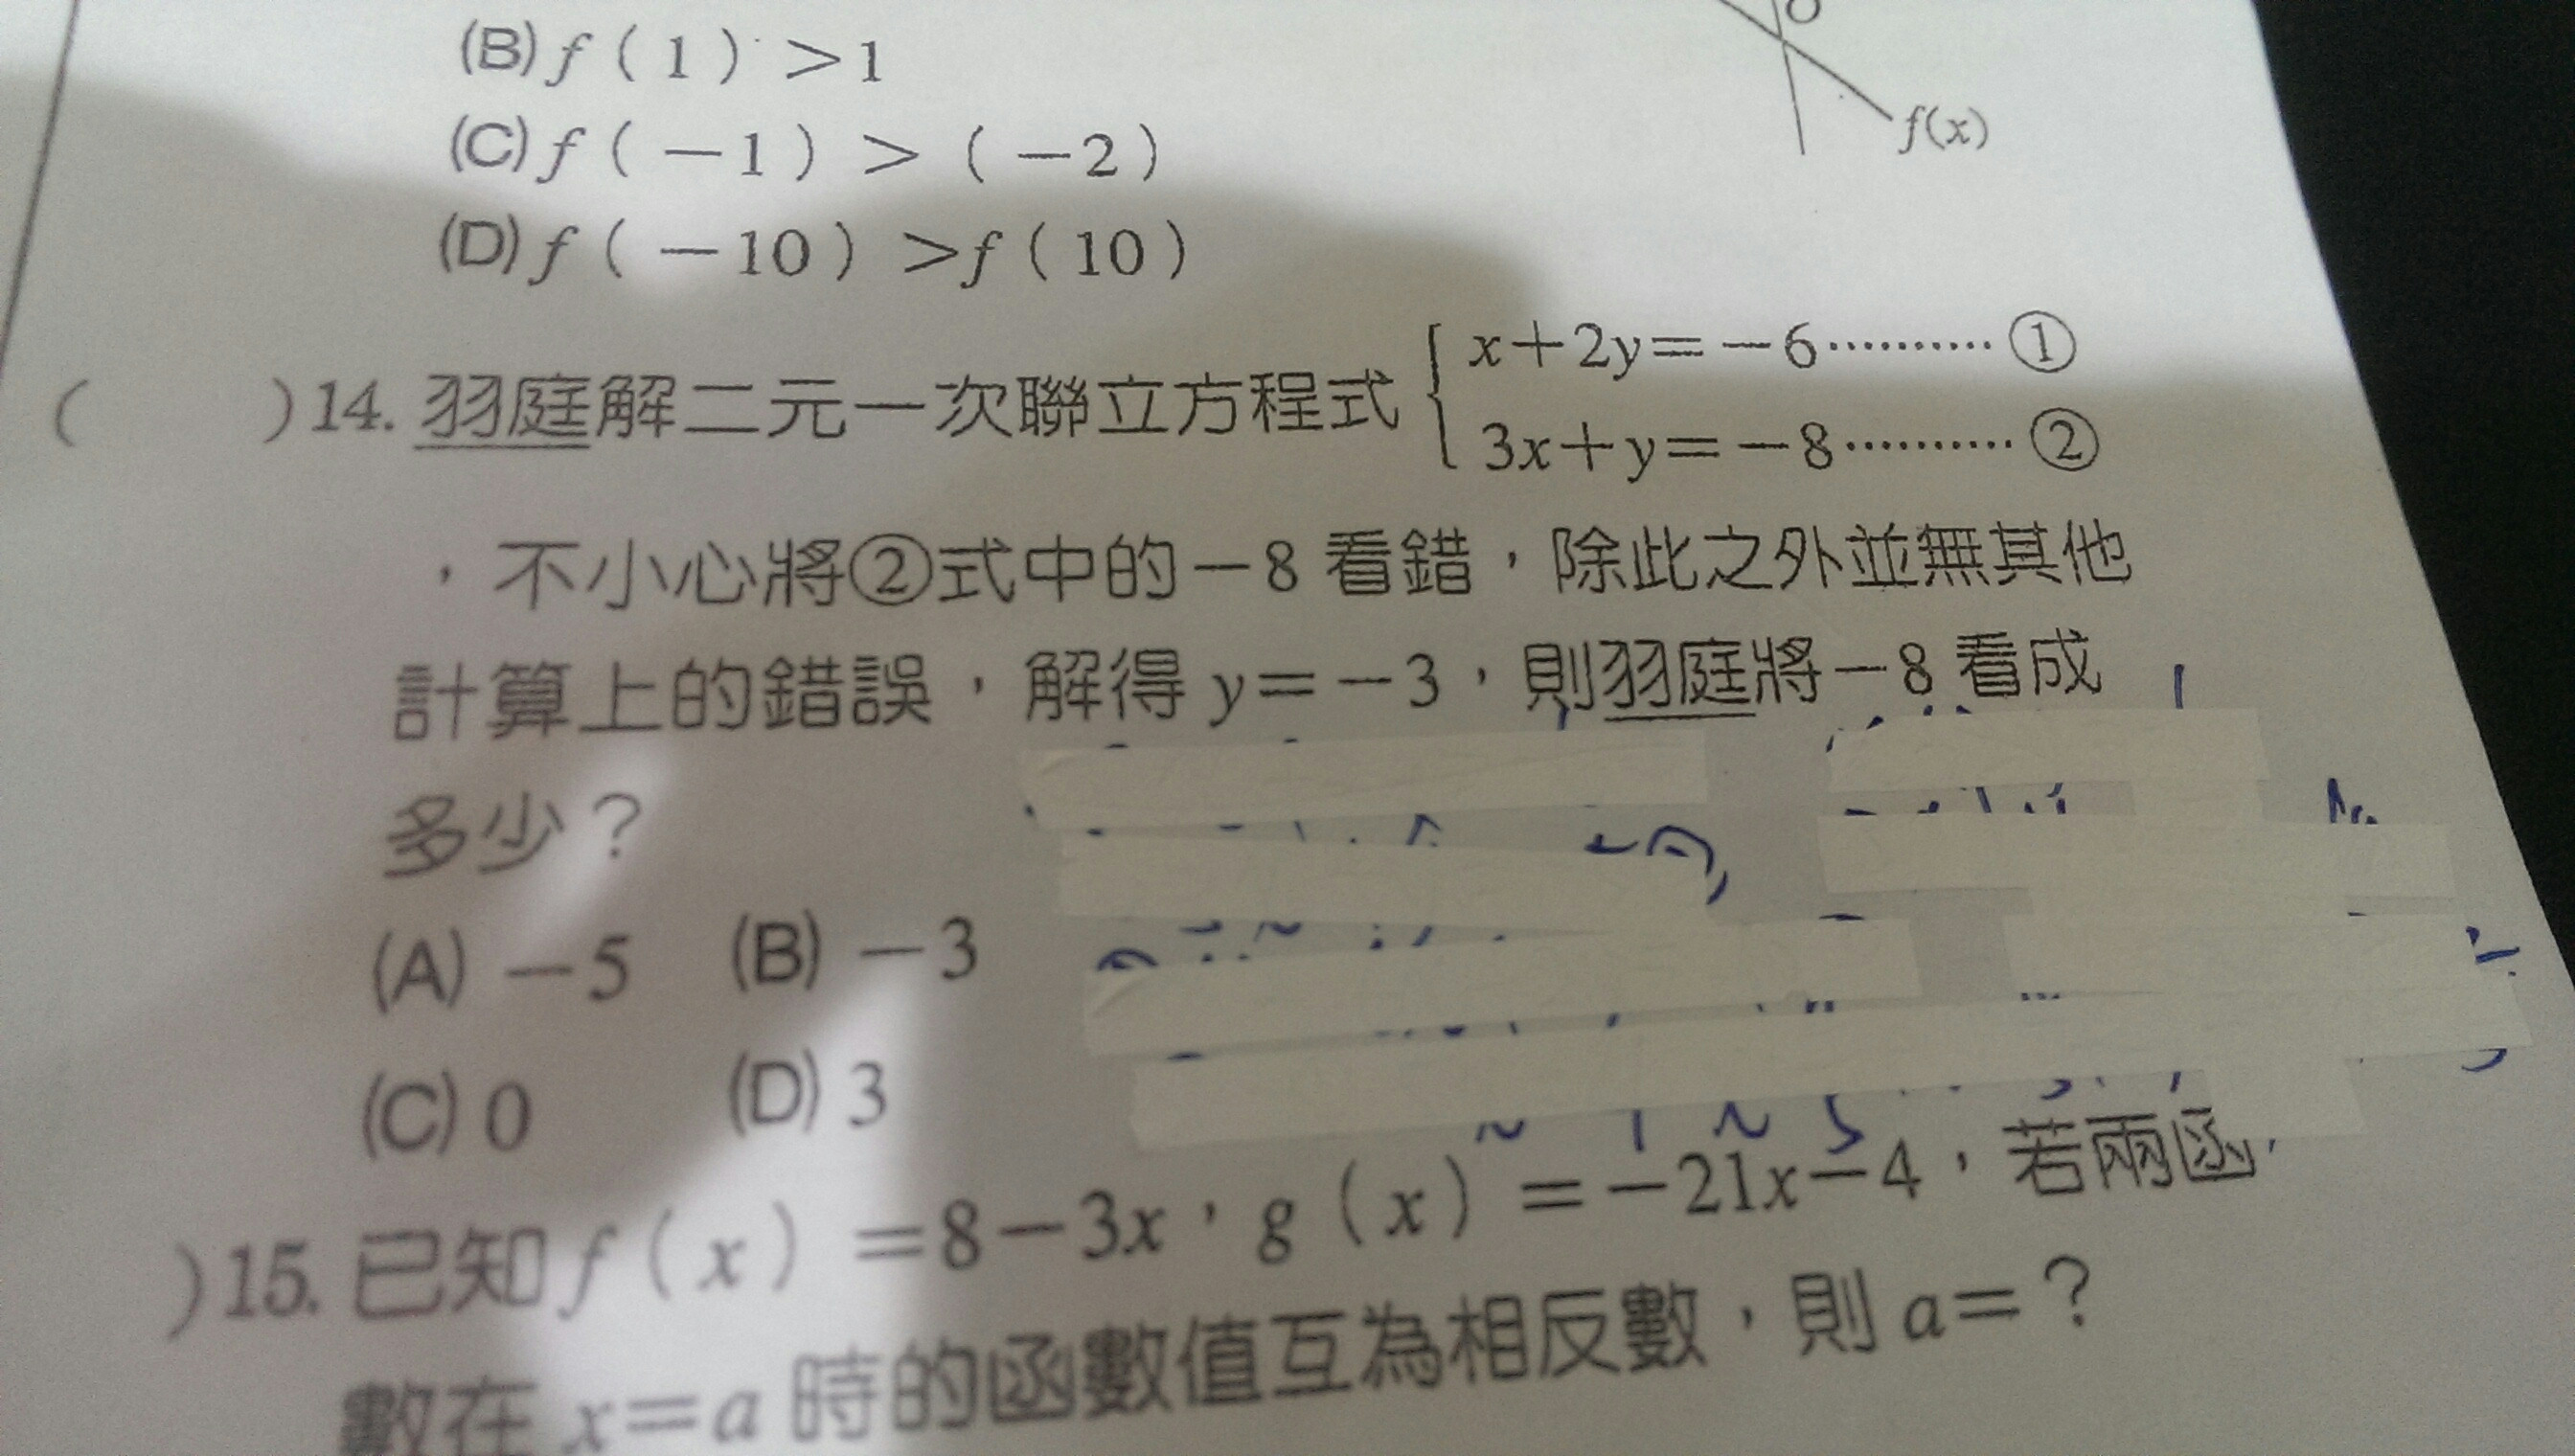 (B) f ( 1 ) > 1
O
(C) f ( －1 ) > ( －2 )
f(x)
(D) f ( －10 ) > f ( 10 )
( )14. 羽庭解二元一次聯立方程式 { x＋2y＝－6⋯⋯⋯⋯ ①
3x＋y＝－8⋯⋯⋯⋯ ②
，不小心將②式中的－8 看錯，除此之外並無其他
計算上的錯誤，解得 y＝－3，則羽庭將－8 看成
多少？
(A) －5 (B) －3
(C) 0 (D) 3
)15. 已知 f ( x ) ＝8－3x，g ( x ) ＝－21x－4，若兩函
數在 x＝a 時的函數值互為相反數，則 a＝？